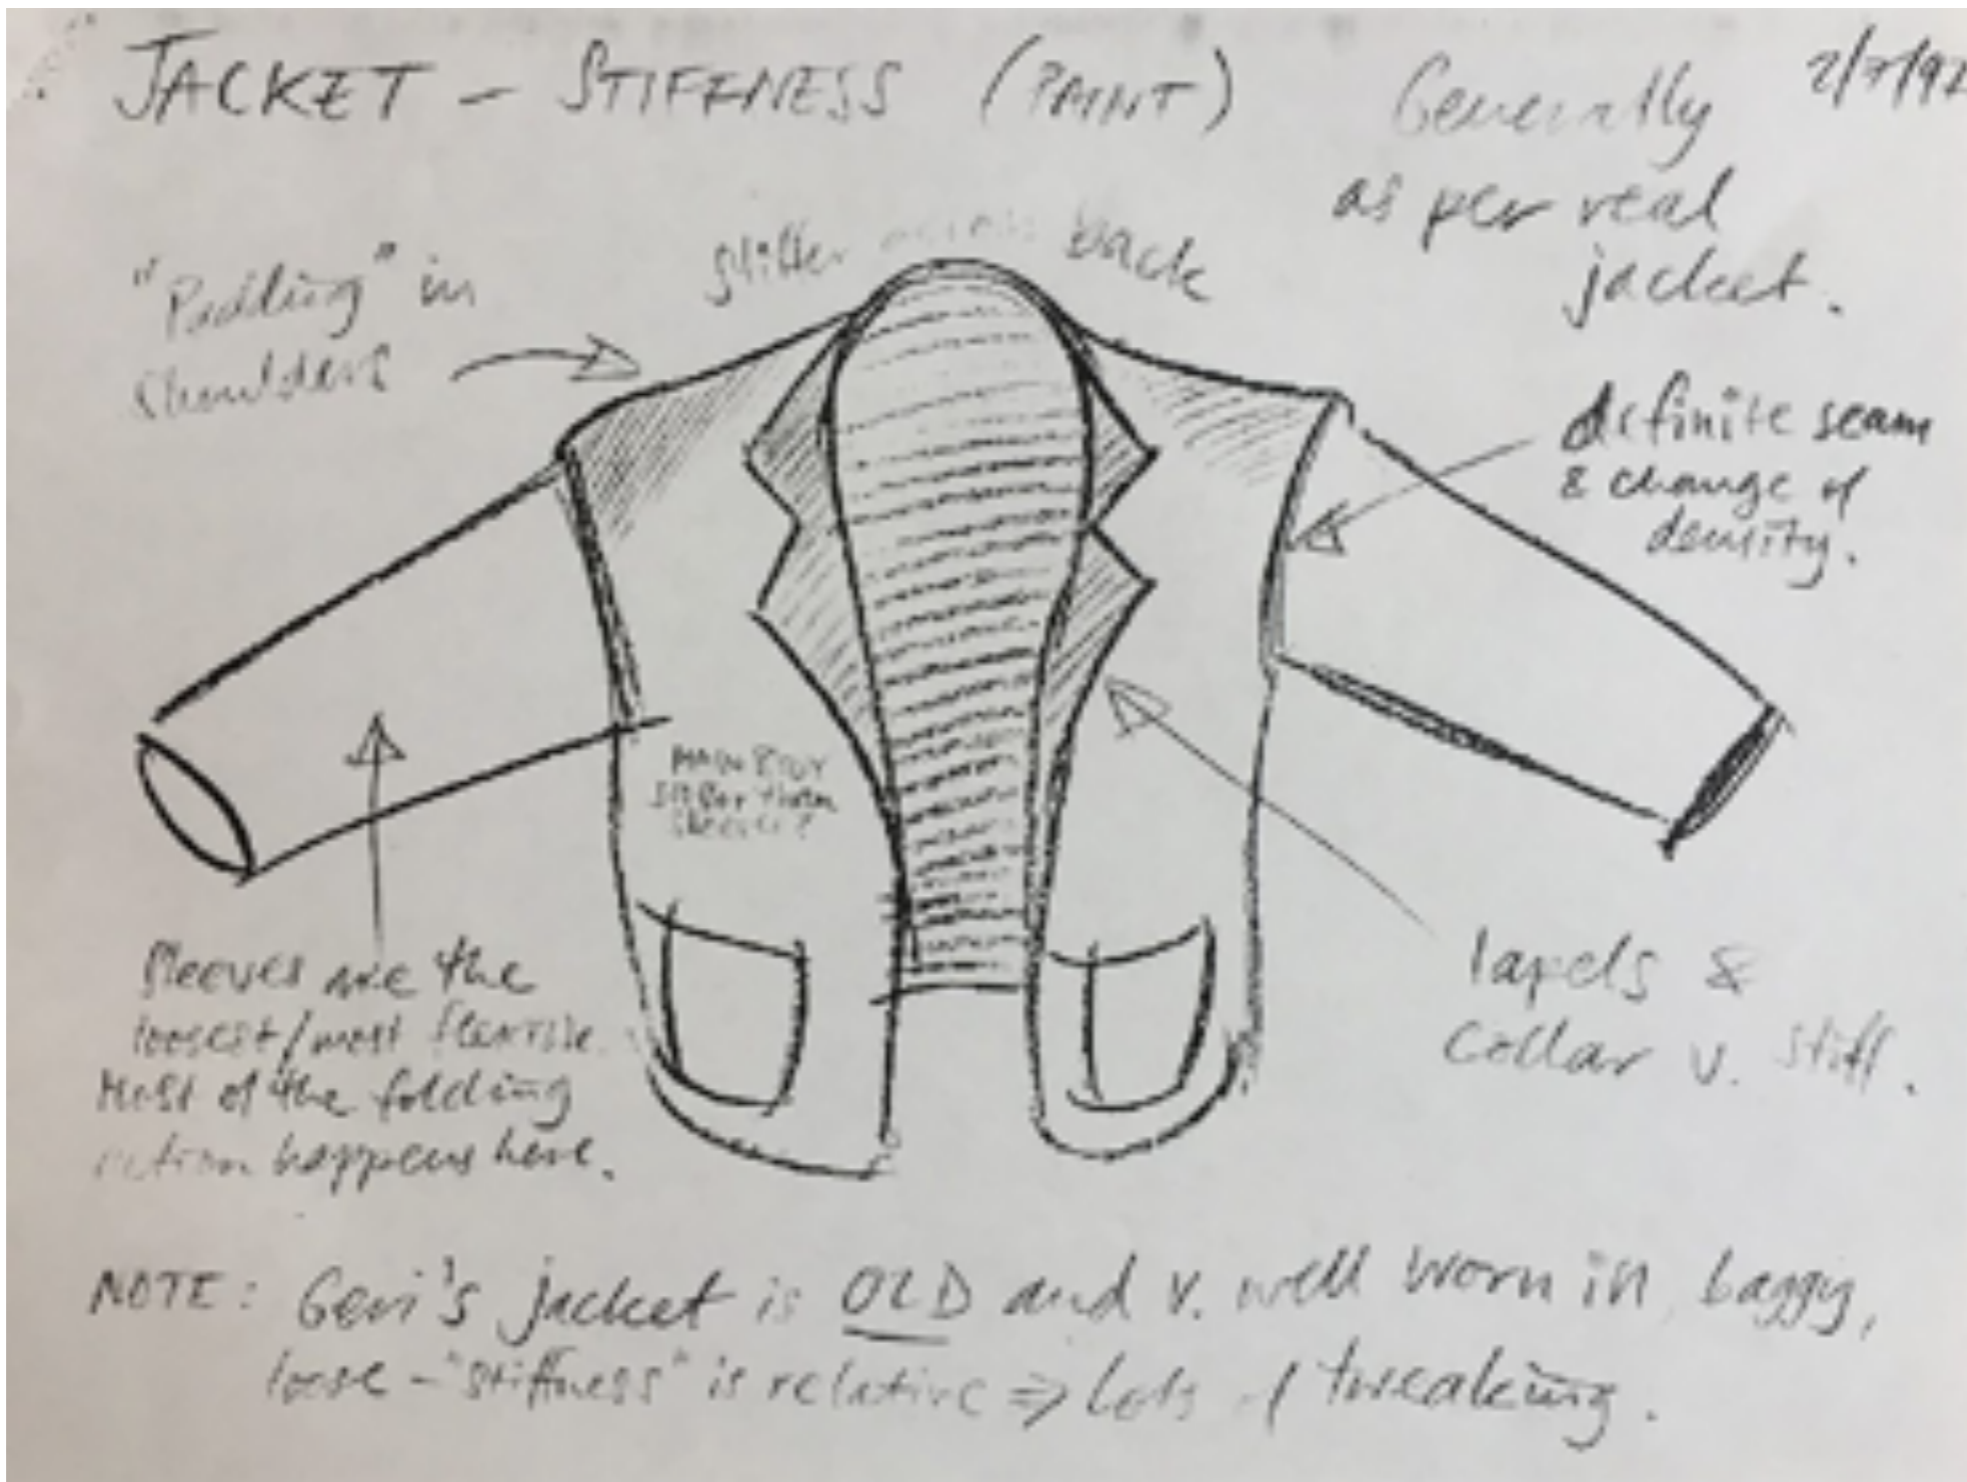 JACKET - STIFFNESS (PAINT)
2/7/97
Generally
as per real
jacket.
"Padding" in
shoulders
stiffer across back
definite seam
& change of
density.
MAIN BODY
stiffer than
sleeves?
Sleeves are the
loosest/most flexible.
Most of the folding
action happens here.
lapels &
collar v. stiff.
NOTE: Geri's jacket is OLD and v. well worn in, baggy,
loose - "stiffness" is relative ⇒ Lots of tweaking.